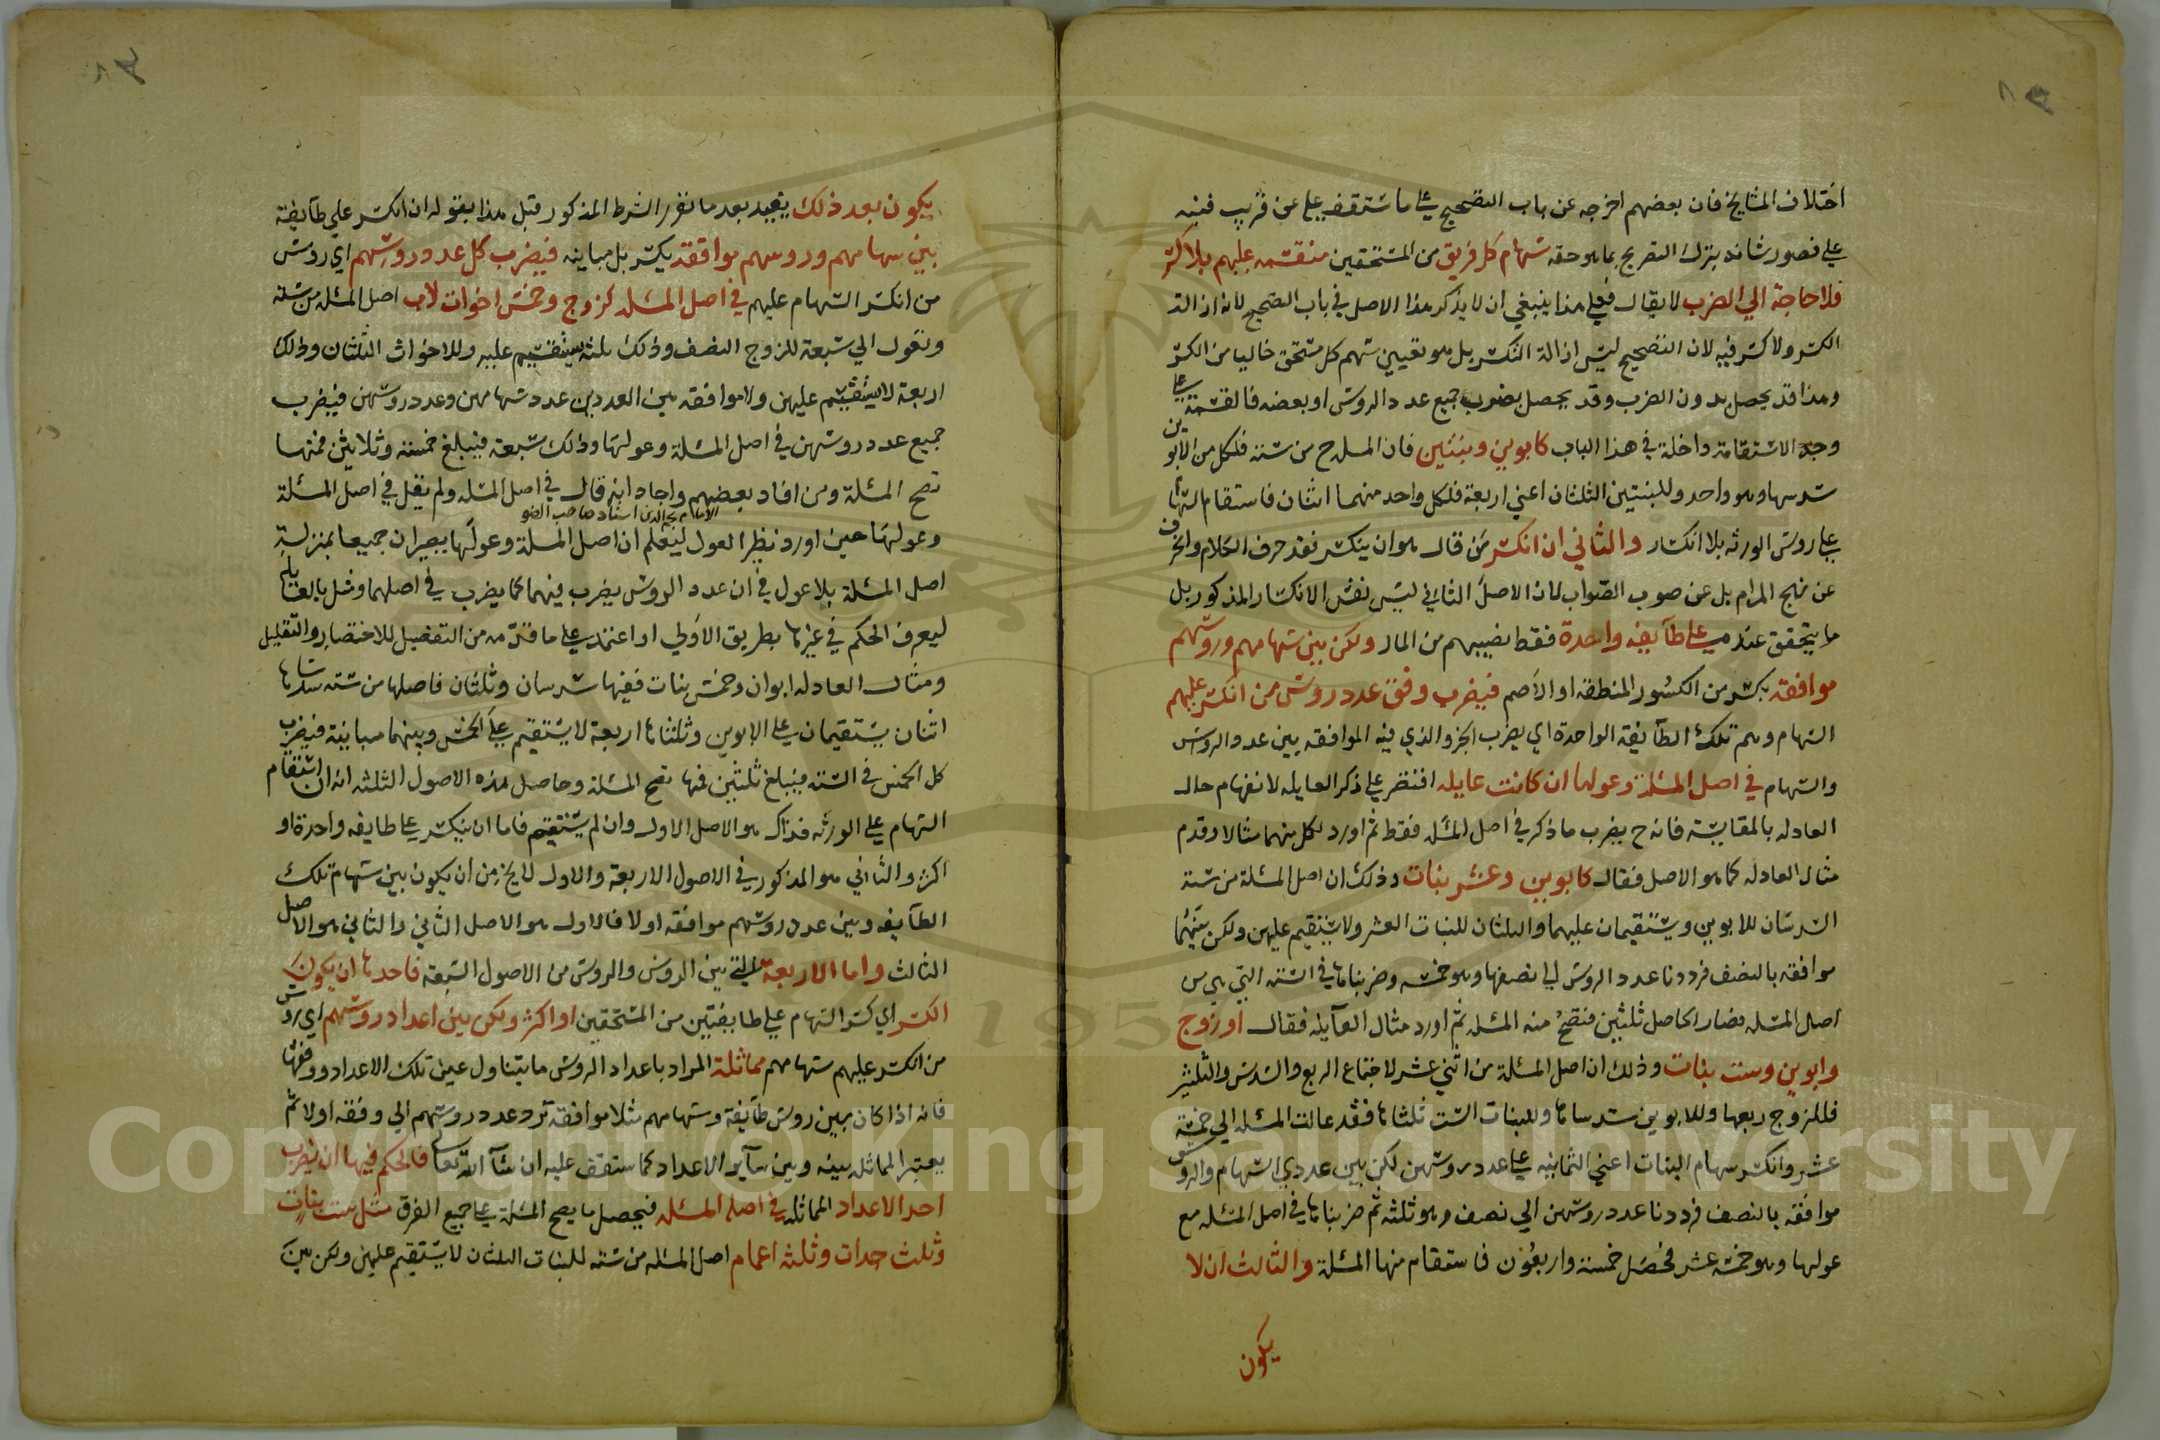 اختلاف المشايخ فان بعضهم اخرجه عن باب التصحيح على ما ستقف عليه عن قريب فنبه
على قصور شانه بترك التصريح بما هو حقه سهام كل فريق من المستحقين منقسمه عليهم بلا كسر
فلا حاجة الي الضرب لا يقال فعلي هذا ينبغي ان لا يذكر هذا الاصل في باب التصحيح لانه ازالة
الكسر ولا كسر فيه لان التصحيح ليس ازالة الكسر بل هو تعيين سهم كل مستحق خاليا من الكسر
وهذا قد يحصل بدون الضرب وقد يحصل بضرب جميع عدد الروس او بعضه فالقسمة على
وجه الاستقامة داخلة في هذا الباب كابوين وبنتين فان المسله ح من ستة فلكل من الابوين
سدسها وهو واحد وللبنتين الثلثان اعني اربعة فلكل واحد منهما اثنان فاستقام السهام
على روس الورثه بلا انكسار والثاني ان انكسر من قال هو ان ينكسر فقد حرف الكلام وانحرف
عن نهج المرام بل عن صوب الصواب لان الاصل الثاني ليس نفس الانكسار المذكور بل
ما يتحقق عنده على طايفه واحدة فقط نصيبهم من المال ولكن بين سهامهم وروسهم
موافقه بكسر من الكسور المنطقه او الاصم فيضرب وفق عدد روس من انكسر عليهم
السهام وهم تلك الطايفة الواحدة اي يضرب الجزو الذي فيه الموافقه بين عدد الروس
والسهام في اصل المسئلة وعولها ان كانت عايله اقتصر على ذكر العايله لانفهام حال
العادله بالمقايسة فانه ح يضرب ما ذكر في اصل المسئله فقط ثم اورد لكل منهما مثالا وقدم
مثال العادله كما هو الاصل فقال كابوين وعشر بنات وذلك ان اصل المسئلة من ستة
السدسان للابوين ويستقيمان عليهما والثلثان للبنات العشر ولا يستقيم عليهن ولكن بينهما
موافقه بالنصف فرددنا عدد الروس الي نصفها وهو خمسه وضربناها في الستة التي هي س
اصل المسئله فصار الحاصل ثلثين فتصح منه المسئله ثم اورد مثال العايله فقال او زوج
وابوين وست بنات وذلك ان اصل المسئلة من اثني عشر لاجتماع الربع والسدس والثلثين
فللزوج ربعها وللابوين سدساها وللبنات الست ثلثاها فقد عالت المسئله الي خمسة
عشر وانكسر سهام البنات اعني الثمانيه على عدد روسهن لكن بين عددي السهام والروس
موافقه بالنصف فرددنا عدد روسهن الي نصف وهو ثلثه ثم ضربناها في اصل المسئله مع
عولها وهو خمسة عشر فحصل خمسة واربعون فاستقام منها المسئلة والثالث ان لا
يكون
يكون بعد ذلك يفيد بعد ما تقرر الشرط المذكور قبل هذا بقوله ان انكسر علي طايفة
بين سهامهم وروسهم موافقة بكسر بل مباينه فيضرب كل عدد روسهم اي روس
من انكسر السهام عليهم في اصل المسئله كزوج وخمس اخوات لاب اصل المسئله من ستة
وتعول الي سبعة للزوج النصف وذلك ثلثه يستقيم عليه وللاخوات الثلثان وذلك
اربعة لا يستقيم عليهن ولا موافقه بين العددين عدد سهامهن وعدد روسهن فيضرب
جميع عدد روسهن في اصل المسئلة وعولها وذلك سبعة فيبلغ خمسة وثلاثين فمنها
تصح المسئلة ومن افاد بعضهم واجاد انه قال في اصل المسئله ولم يقل في اصل المسئلة
وعولها حين اورد نظير العول ليعلم ان اصل المسئلة وعولها يصيران جميعا بمنزلة
اصل المسئلة بلا عول في ان عدد الروس يضرب فيهما كما يضرب في اصلهما ومثل بالعايله
ليعرف الحكم في غيرها بطريق الاولي او اعتمد على ما قدمه من التفصيل للاختصار والتقليل
ومثال العادله ابوان وخمس بنات ففيها سدسان وثلثان فاصلها من ستة سدساها
اثنان يستقيمان على الابوين وثلثاها اربعة لا يستقيم على الخمس وبينهما مباينة فيضرب
كل الخمس في الستة فيبلغ ثلثين فمنها تصح المسئلة وحاصل هذه الاصول الثلثه انه ان استقام
السهام على الورثه فذاك هو الاصل الاول وان لم يستقيم فاما ان ينكسر على طايفه واحدة او
اكثر والثاني هو المذكور في الاصول الاربعة والاول لا يخ من ان يكون بين سهام تلك
الطايفه وبين عدد روسهم موافقه او لا فالاول هو الاصل الثاني والثاني هو الاصل
الثالث واما الاربعة التي بين الروس والروس من الاصول السبعه فاحدها ان يكون
الكسر اي كسر السهام علي طايفتين من المستحقين او اكثر ولكن بين اعداد روسهم اي روس
من انكسر عليهم سهامهم مماثلة المراد باعداد الروس ما يتناول عين تلك الاعداد ووفقها
فانه اذا كان بين روس طايفة وسهامهم مثلا موافقة ترد عدد روسهم الي وفقه اولا ثم
يعتبر المماثله بينه وبين ساير الاعداد كما ستقف عليه ان شآ الله تعالى فالحكم فيها ان يضرب
احد الاعداد المماثله في اصل المسئله فيحصل ما يصح المسئلة على جميع الفرق مثل ست بنات
وثلث جدات وثلثه اعمام اصل المسئله من ستة للبنات الثلثان لا يستقيم عليهن ولكن بين
Copyright © King Saud University
195